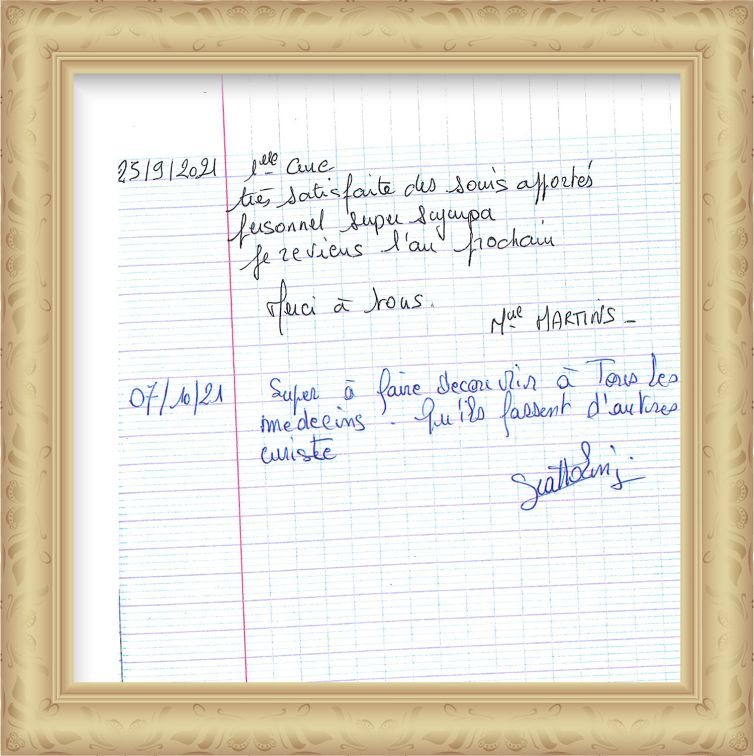 25/9/2021 1ère cure
très satisfaite des soins apportés
personnel super sympa
je reviens l'an prochain
Merci à tous.
Mme MARTINS -
07/10/21 Super à faire decouvrir à Tous les
medecins. Qu'ils fassent d'autres
curiste